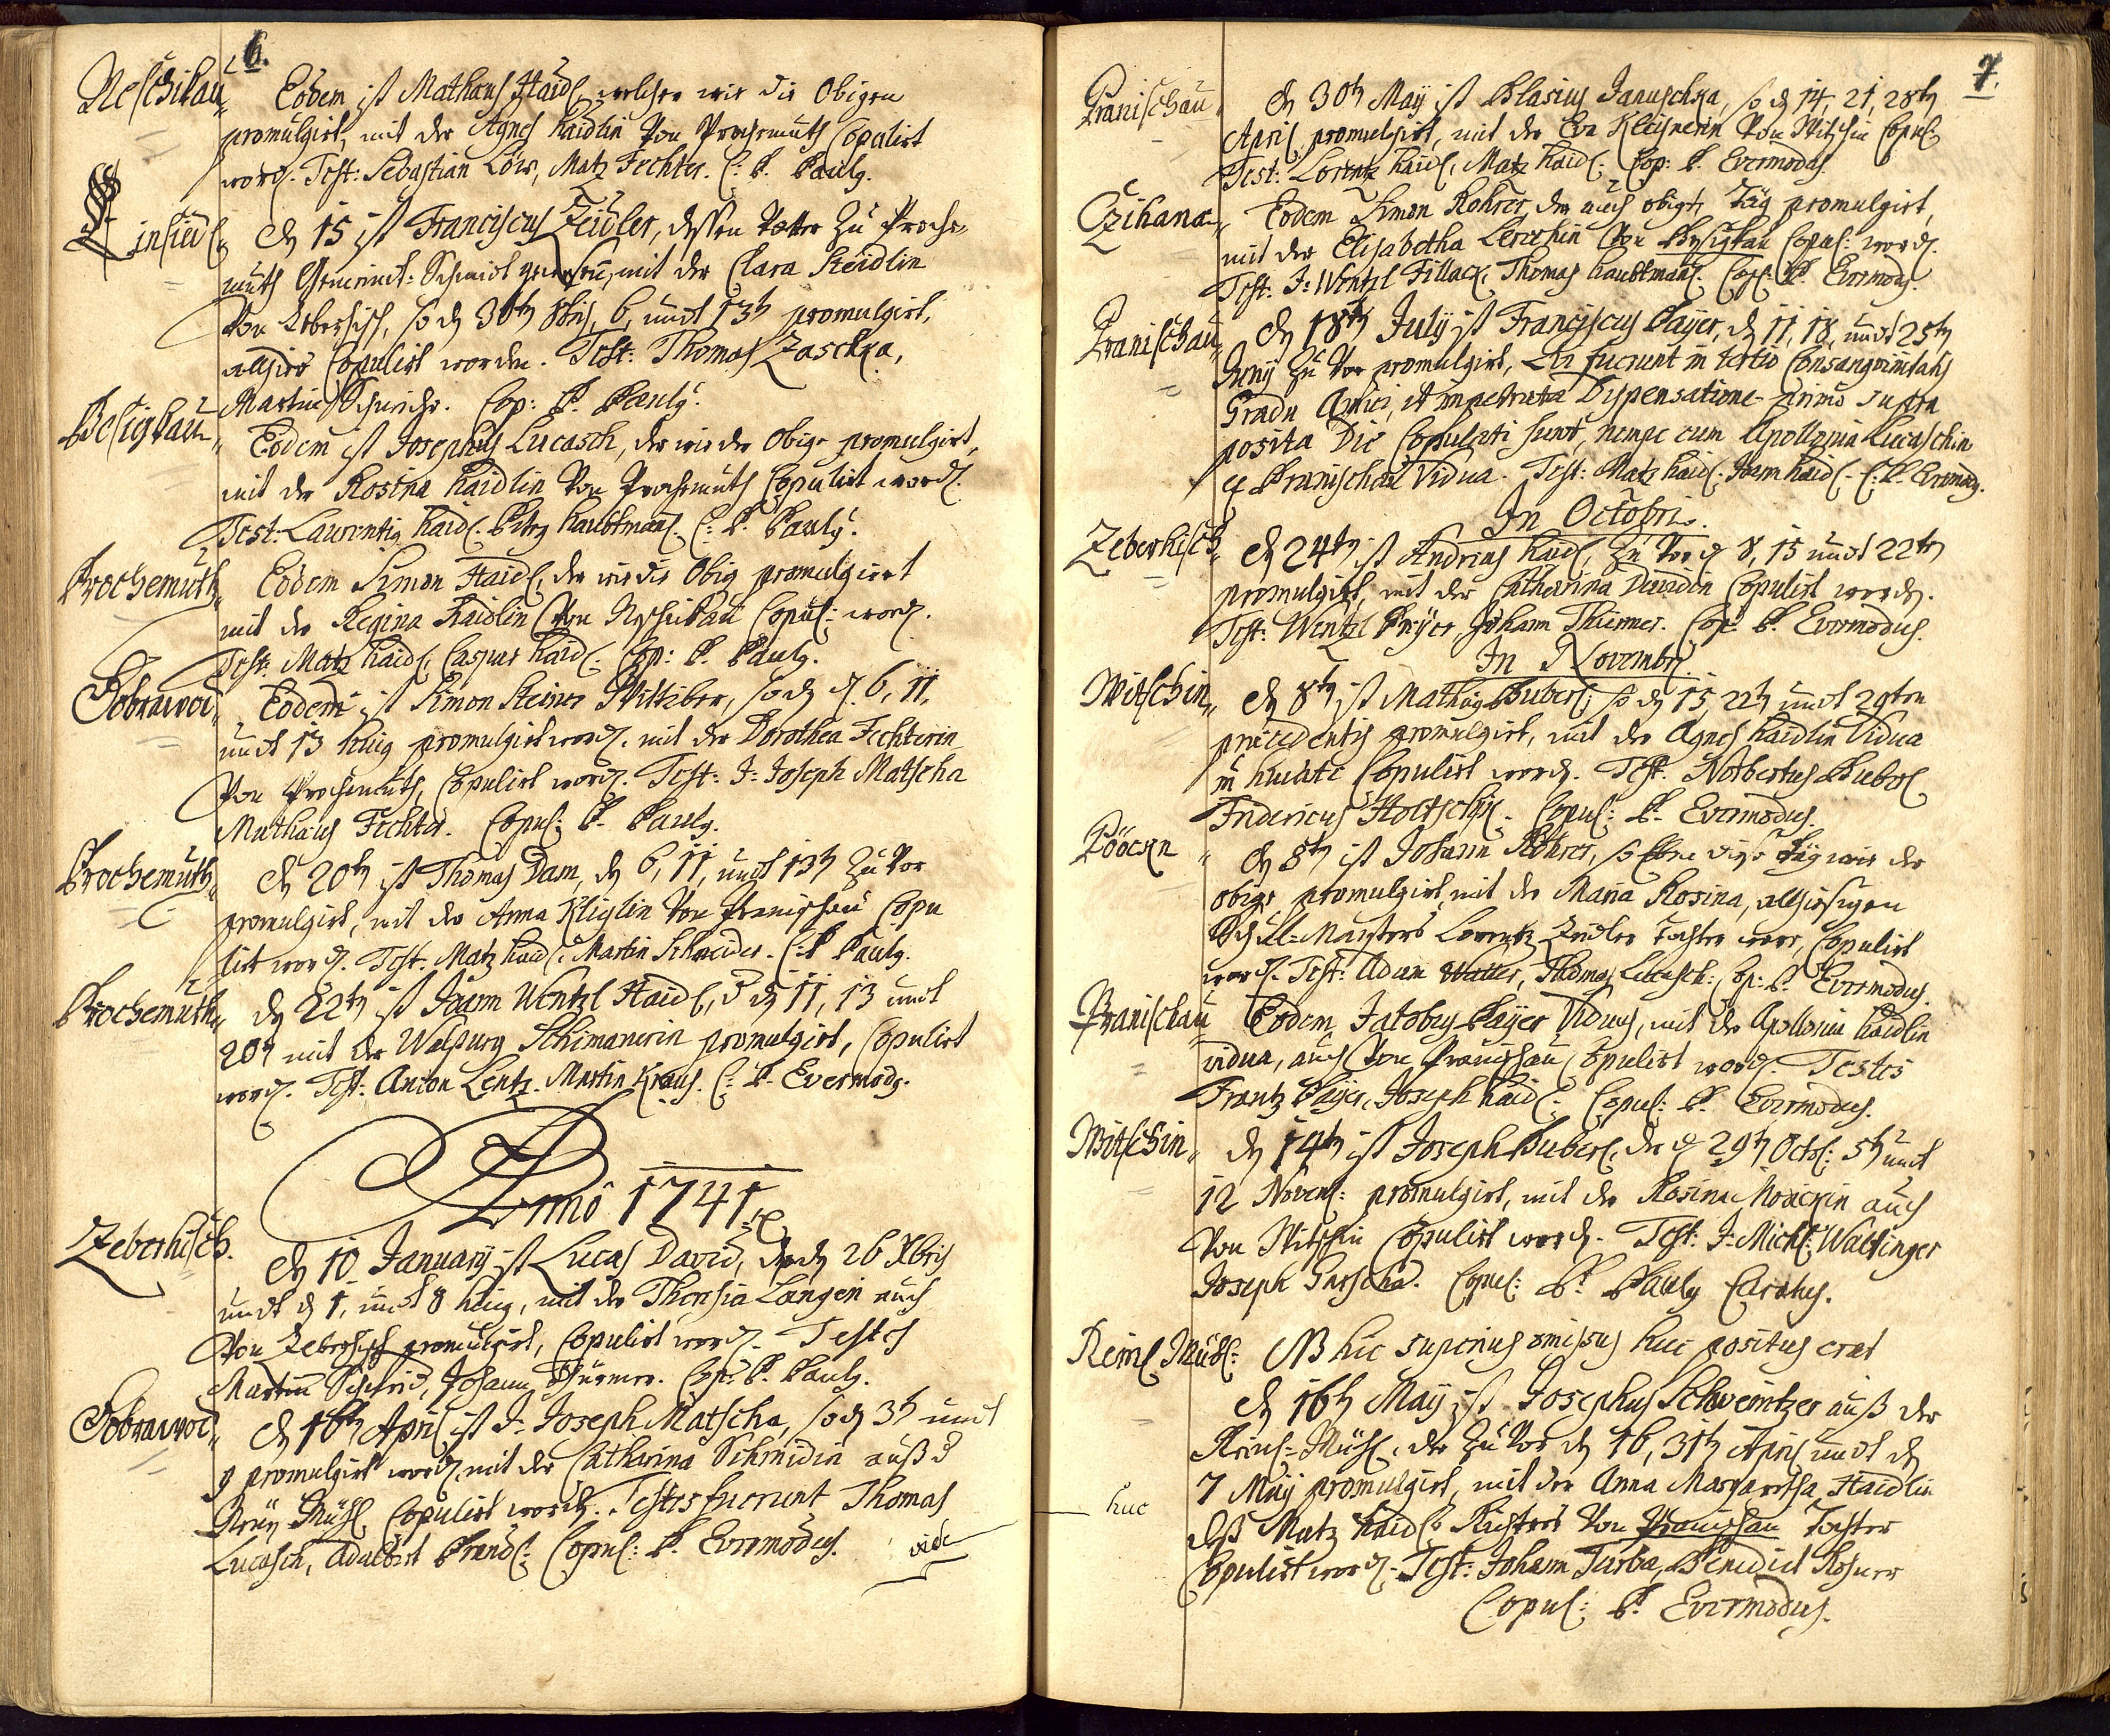 6.
Neschikau
Eodem ist Mathaus Haidl welcher wie die Obigen
promulgirt, mit der Agnes Haidlin von Prochemuth Copulirt
word. Test: Sebastian Löw, Matz Fechter. C: P. Pauly.
Einsiedl
den 15 ist Franciscus Zeidler, dessen Vatter zu Proche-
muth Gemeindt-Schmidt gewesen, mit der Clara Steidlin
von Zeberhisch, so d 30t 8bris, 6, undt 13t promulgirt,
allhier Copulirt worden. Test: Thomas Zaschka,
Martin Schneider. Cop: P. Pauly.
Besigkau
Eodem ist Josephus Lucasch, der wie der Obige promulgirt,
mit der Rosina Haidlin von Prochemuth Copulirt word.
Test: Laurentig Haidl. Petrg Haubtman. C: P. Pauly.
Prochemuth
Eodem Simon Haidl, der wie die Obig promulgirt
mit der Regina Haidlin von Neschikau Copul: word.
Test: Matz Haidl, Caspar Haidl. Cop: P. Pauly.
Dobrawod
Eodem ist Simon Steiner Wittiber, so d 6, 11,
undt 13 huig promulgirt word. mit der Dorothea Fechterin
von Prochemuth, Copulirt word. Test: J: Joseph Matscha
Mathaus Fechter. Copul: P. Pauly.
Prochemuth
den 20t ist Thomas Dam, d 6, 11, undt 13t zu vor
promulgirt, mit der Anna Kliglin von Pranischau Copu
lirt word. Test. Matz Haidl. Martin Schneider. C: P Pauly.
Prochemuth
den 22t ist Joann Wentzl Haidl, d 11, 13 undt
20t mit der Walpurg Schimanerin promulgirt, Copulirt
word. Test: Anton Lentz. Martin Kraus. C: P. Evermodg.
Anno 1741
Zeberhisch.
den 10 January ist Lucas David, d 26 Xbris
undt d 1, undt 8 huig, mit der Theresia Langin auch
von Zeberhisch promulgirt, Copulirt word. Testes
Martin Schmid, Johann Thürmer. Cop: P. Pauly.
Dobrawod
den 16t April ist J: Joseph Matscha, so d 3t undt
9 promulgirt word, mit der Catharina Schmidin auß d
Neuy Mühl Copulirt word. Testes fuerunt Thomas
Lucasch, Adalbert Prendl. Copul: P. Evermodus.
vide
7.
Pranischau
den 30t May ist Blasius Januschka, so d 14, 21, 28t
April promulgirt, mit der Eva Kleisnerin von Witschin Copul:
Test: Lorentz Haidl, Matz Haidl. Cop: P. Evermodus.
Czihana
Eodem Simon Rohrer, der auch obigt Täg promulgirt,
mit der Elisabetha Lerchin von Besigkau Copul: word.
Test: J: Wentzl Fillack, Thomas Haubtman. Cop: P. Evermodus.
Pranischau
den 18t July ist Franciscus Bayer, d 11, 18, undt 25t
Juny zu vor promulgirt, fuerunt in tertio Consanguinitatis
Gradu Amici, et impetrata Dispensatione primo supra
posita Die Copulati sunt, nempe cum Apollonia Lucaschin
ex Pranischau Vidua. Test: Matz Haidl, Joann Haidl. C: P. Evermodg.
In Octobri.
Zeberhisch
den 24t ist Andreas Haidl, zu vor d 8, 15 undt 22t
promulgirt, mit der Catharina Davidin Copulirt word.
Test: Wentzl Preyer Johann Thürmer. Cop: P. Evermodus.
In Novembr.
Witschin
den 8t ist Mathias Buberl, so d 15, 22t undt 29ten
praecedentis promulgirt, mit der Agnes Haidlin Vidua
Copulirt word. Test. Norbertus Buberl
Fridericus Holtschik. Copul: P. Evermodus.
Pöockn
den 8t ist Johann Rohrer, so eben diese Täg wie der
obige promulgirt, mit der Maria Rosina, allhiesigen
Schul-Maisters Lorentz Zeidler Tochter, Copulirt
word. Test: Adam Walter, Thomas Lucasch: Cop: P. Evermodus.
Pranischau
Eodem Jacobus Bayer Viduus, mit der Apollonia Haidlin
vidua, auch von Pranischau Copulirt word. Testes
Frantz Bayer, Joseph Haidl. Copul: P. Evermodus.
Witschin
den 14t ist Joseph Buberl, der d 29t Octb: 5t undt
12 Novemb: promulgirt, mit der Rosina Mockin auch
von Witschin Copulirt word. Test: J: Michl: Waltinger
Joseph Garscha. Copul: P. Pauly Curatus.
Reinl Mühl:
NB hic superius omissus huc positus erat
den 16t May ist Josephus Schweintzer auß der
Reinl-Mühl, der zu vor d 16, 31t April undt d
7 May promulgirt, mit der Anna Margaretha Haidlin
huc
deß Matz Haidls Richters von Pranischau Tochter
Copulirt word. Test: Johann Turba, Benedict Rosner
Copul: P. Evermodus.